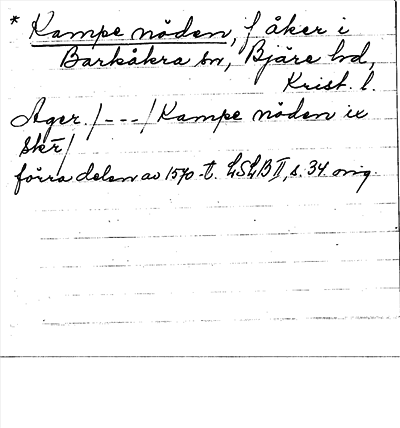 * Kampe nöden, f åker i
Barkåkra sn, Bjäre hd,
Krist. l.
Ager. /---/ Kampe nöden ix
skr̄/
förra delen av 1570-t. LSLB II, s. 34 orig